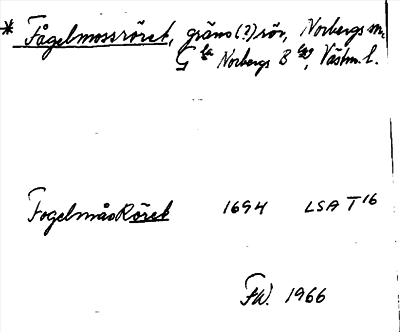 * Fågelmossröret, gräns(?)rör, Norbergs sn,
Norbergs B, Västm. l.
FogelmåsRöret 1694 LSA T 16
FW. 1966